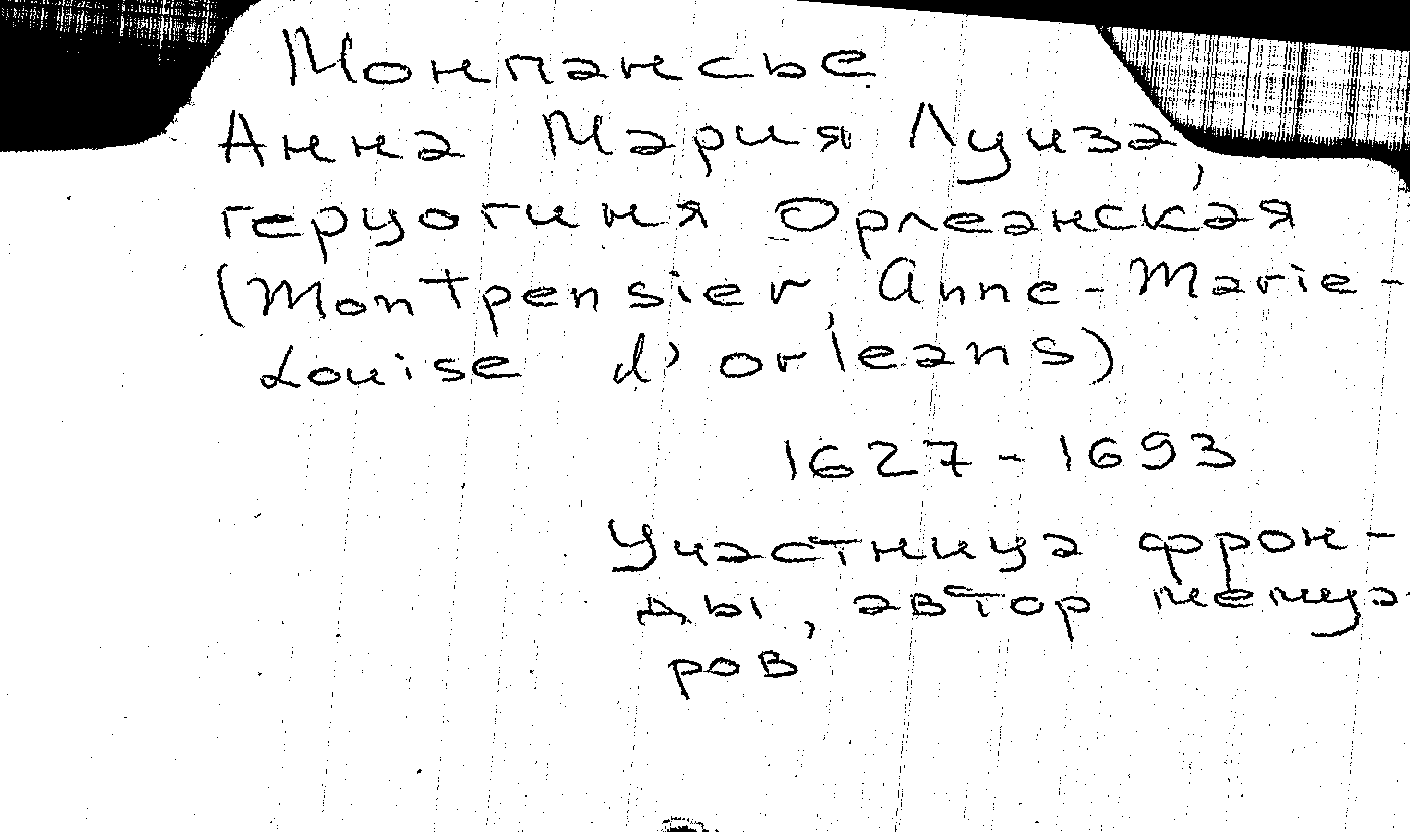 Монпансье
Анна Мария Луиза,
герцогиня Орлеанская
(Montpensier, Anne-Marie-
Louise d'orleans)
1627-1693
Участница фрон-
ды, автор мемуа
ров